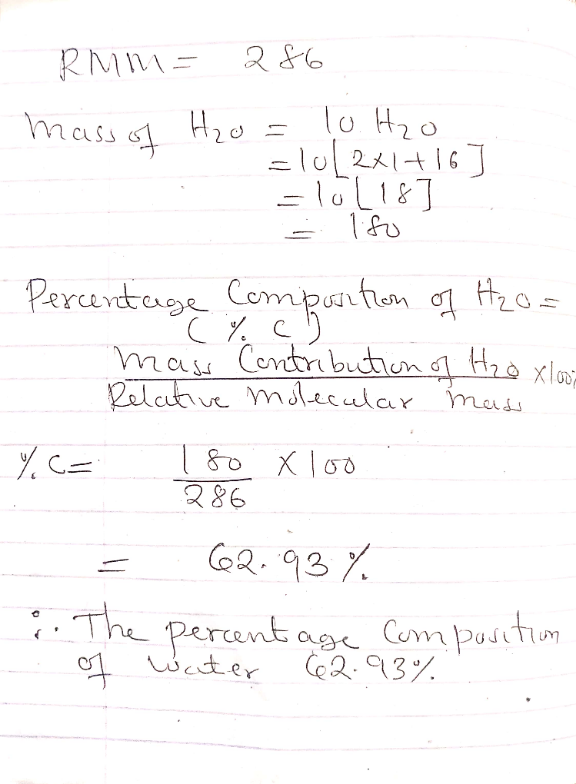 RMM = 286
Mass of H₂O = 10 H₂O
= 10[2×1+16]
= 10[18]
= 180
Percentage Composition of H₂O =
(% C)
Mass Contribution of H₂O ×100%
Relative molecular mass
% C = 180 × 100
286
= 62.93 %
∴ The percentage Composition
of water 62.93%